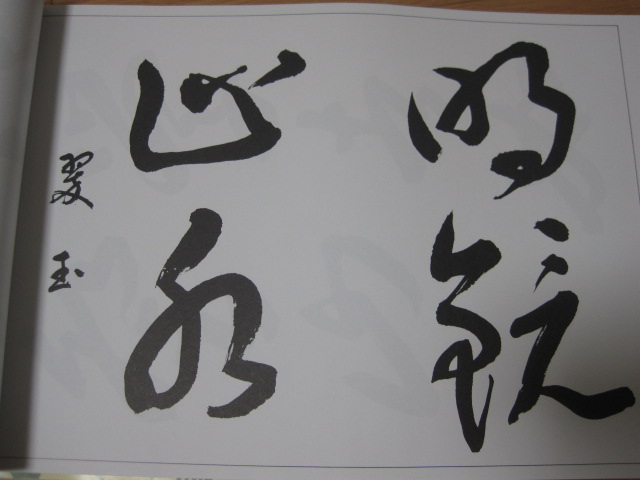 明鏡
止水
翠玉